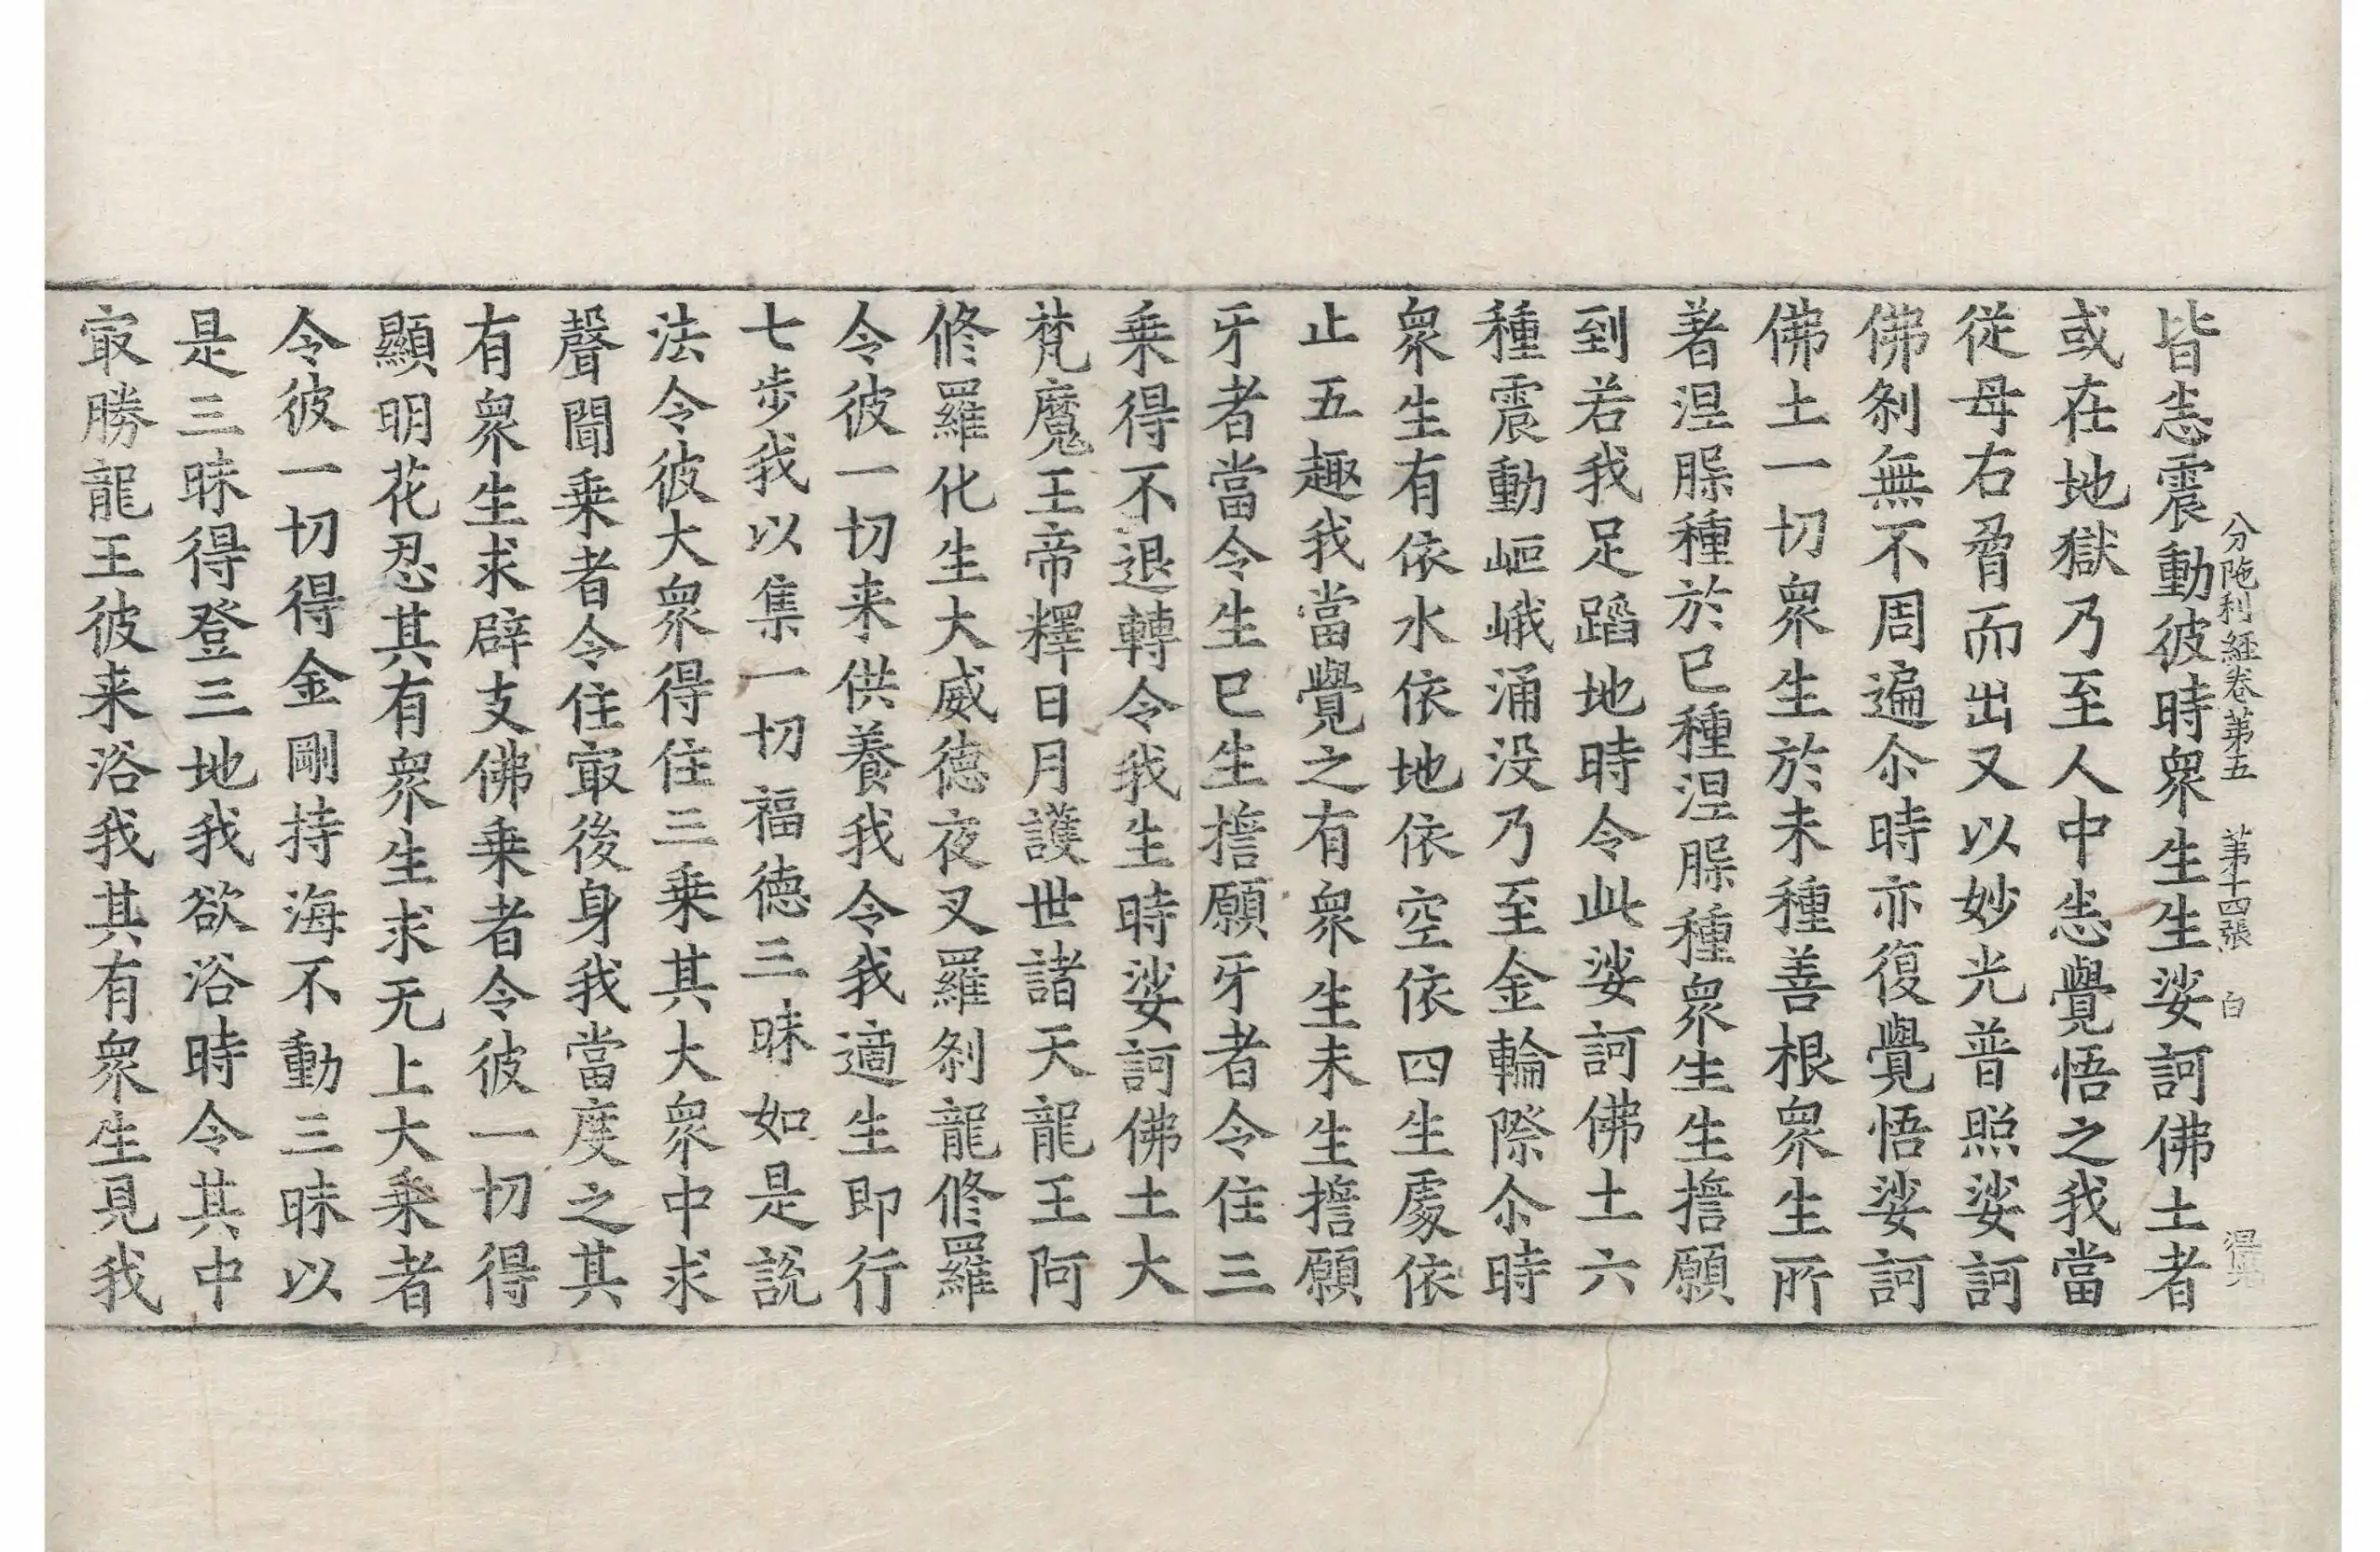 分陁利經卷第五 第十四張 白
皆悉震動彼時衆生生娑訶佛土者
或在地獄乃至人中悉覺悟之我當
從母右脅而出又以妙光普照娑訶
佛刹無不周遍尒時亦復覺悟娑訶
佛土一切衆生於未種善根衆生所
著涅槃種於已種涅槃種衆生生擔願
到若我足蹈地時令此娑訶佛土六
種震動岖峨涌没乃至金輪際尒時
衆生有依水依地依空依四生處依
止五趣我當覺之有衆生未生擔願
牙者當令生已生擔願牙者令住三
乗得不退轉令我生時娑訶佛土大
梵魔王帝釋日月護世諸天龍王阿
修羅化生大威德夜叉羅刹龍修羅
令彼一切来供養我令我適生即行
七步我以集一切福德三昧如是說
法令彼大衆得住三乗其大衆中求
聲聞乗者令住㝡後身我當度之其
有衆生求辟支佛乗者令彼一切得
顯明花忍其有衆生求无上大乗者
令彼一切得金剛持海不動三昧以
是三昧得登三地我欲浴時令其中
㝡勝龍王彼来浴我其有衆生見我